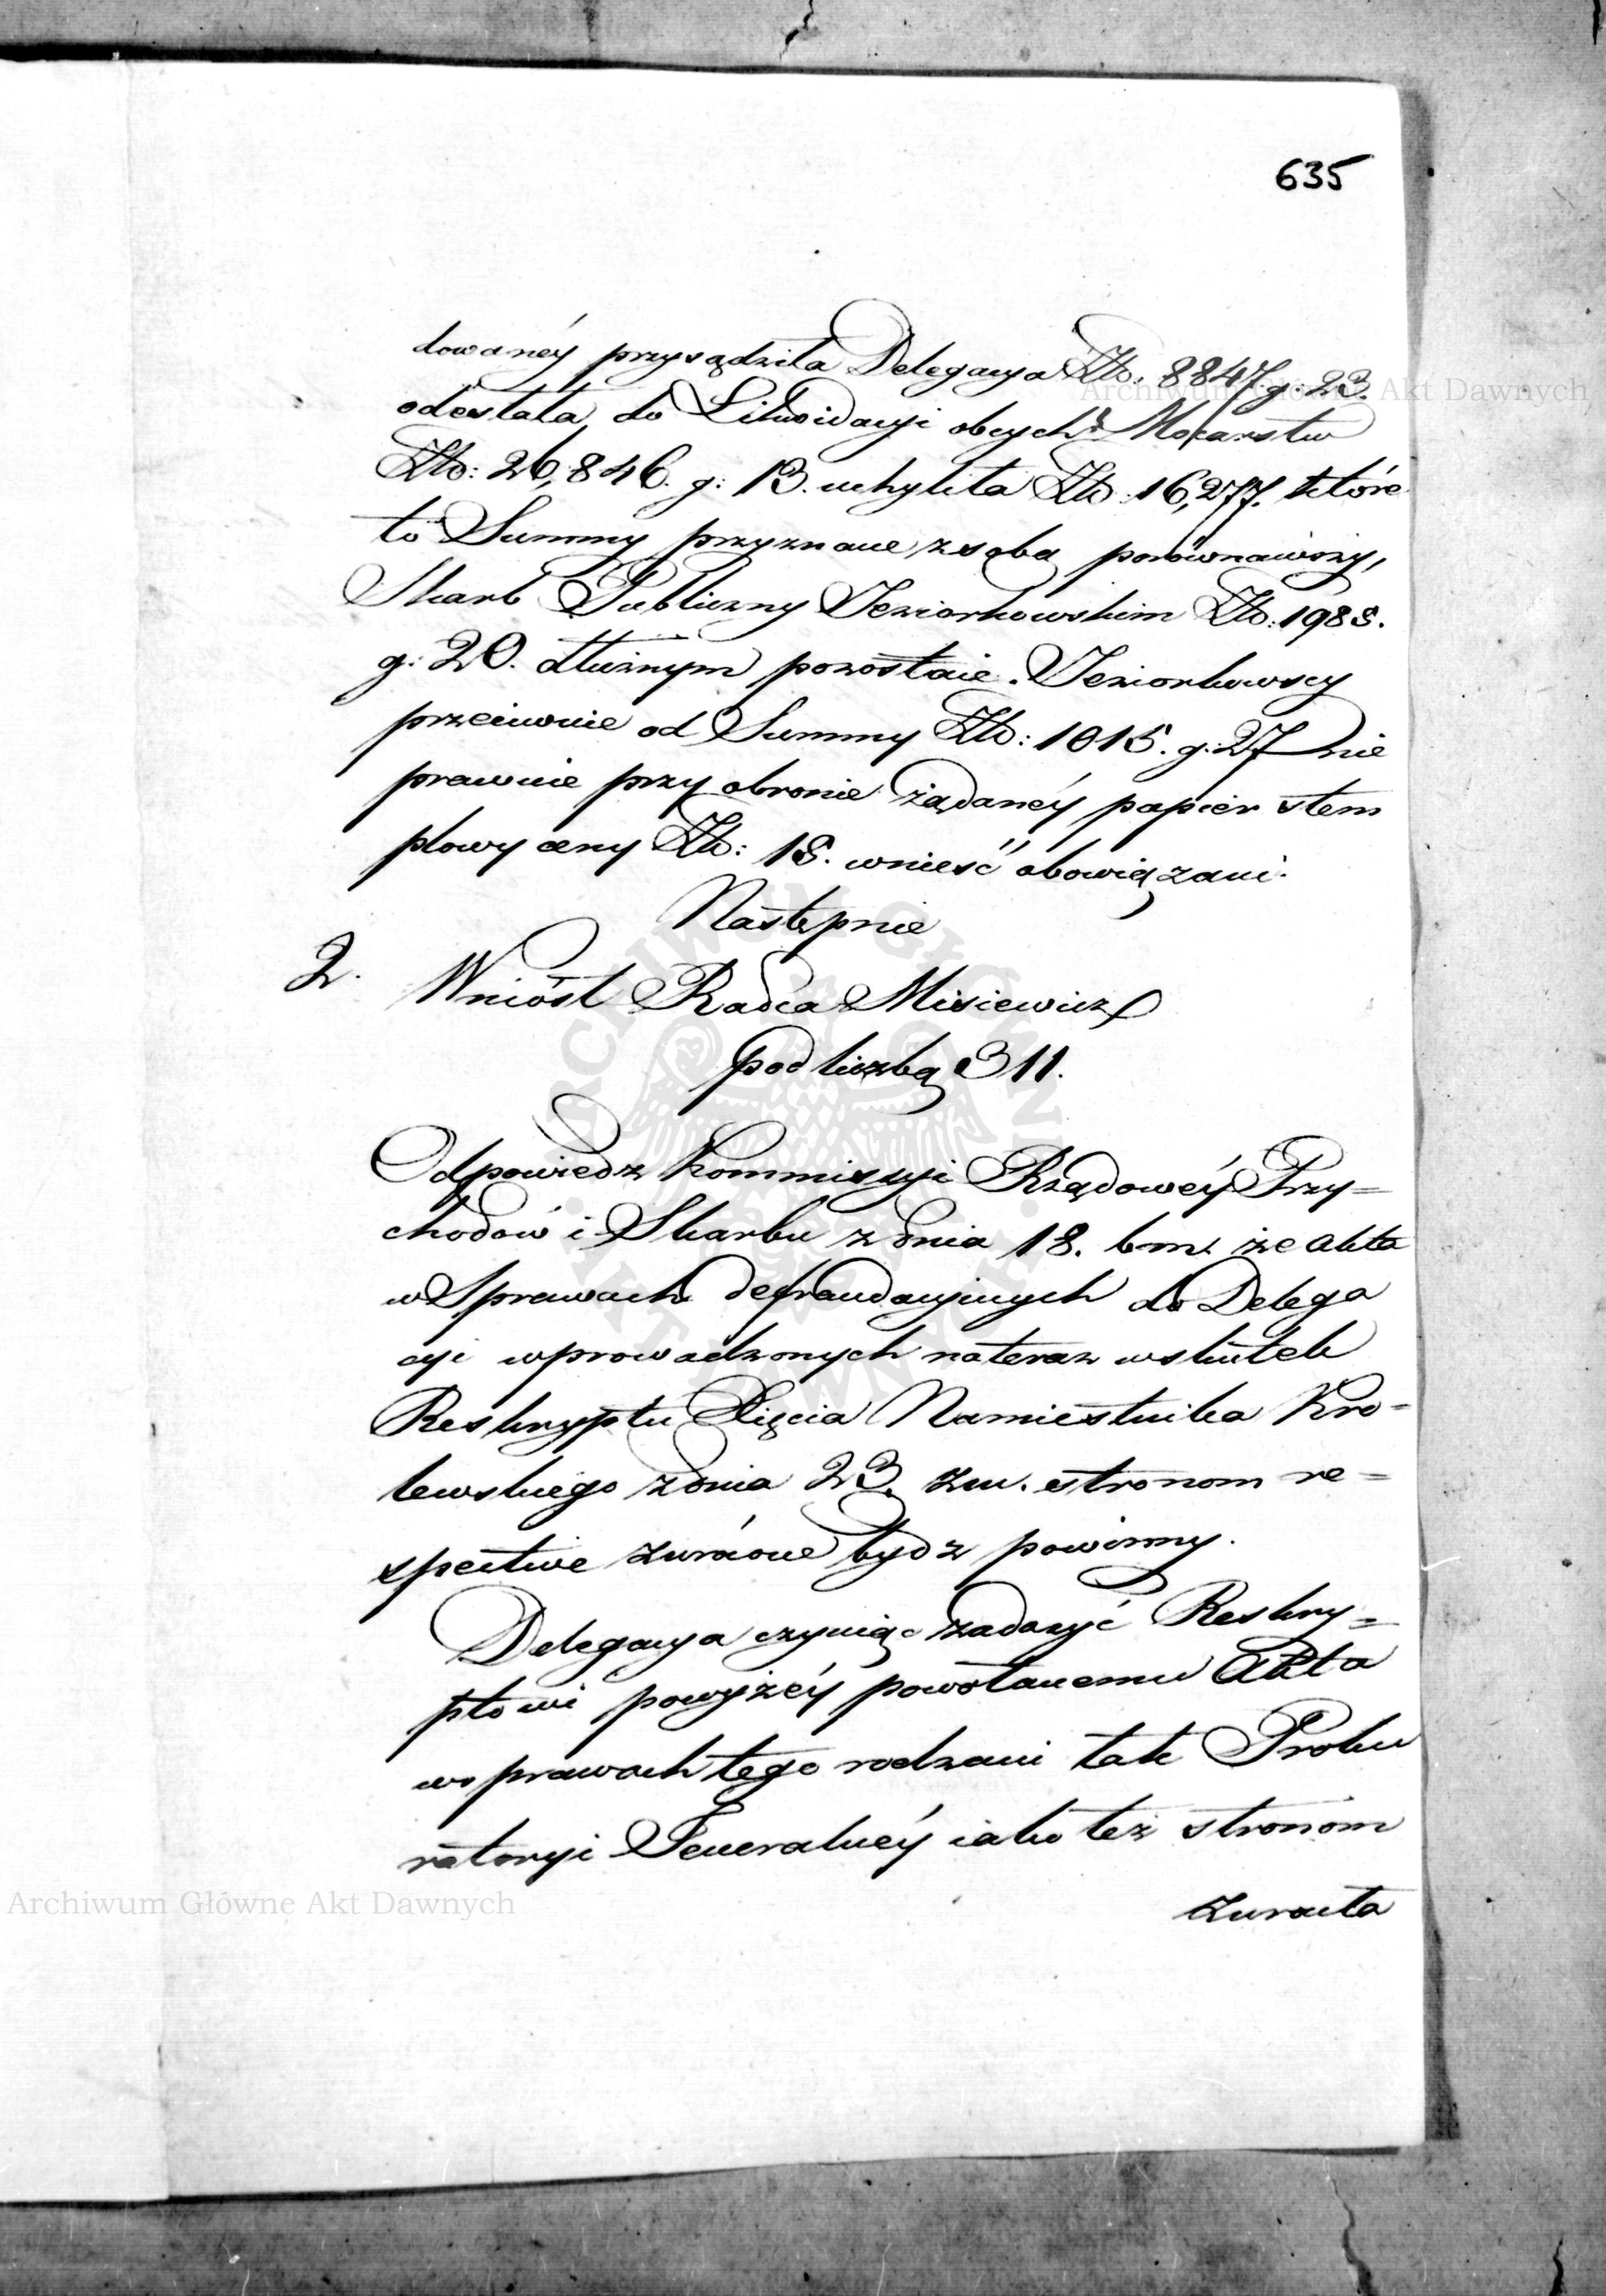 635
dowanéy przysądziła Delegacya Złp. 8847. g. 23.
odesłała do Likwidacyi obcych Mocarstw
Złp: 26,846. g: 13. uchyliła Złp. 16,277. które
to Summy przyznane z sobą porównawszy,
Skarb Publiczny Jeziorkowskim Złp. 1988.
g: 20. dłużnym pozostaie. Jeziorkowscy
przeciwnie od Summy Złp: 1015. g. 27 nie
prawnie przy obronie żądanéy papier stem
plowy ceny Złp: 18. wnieść obowiązani.
Następnie
2. Wniósł Radca Misiewicz
pod liczbą 311.
Odpowiedz Kommissyi Rządowéy Przy=
chodów i Skarbu z dnia 18. bm. że akta
w Sprawach defraudacyinych do Delega
cyi wprowadzonych nateraz wskutek
Reskryptu Xięcia Namiestnika Kró=
lewskiego z dnia 23. zm. stronom re=
spective zwrócone bydz powinny.
Delegacya czyniąc zadosyć Reskry=
ptowi powyżéy powołanemu Akta
w sprawach tego rodzaiu tak Proku
ratoryi Generalnéy iako też stronom
zwróciła
Archiwum Główne Akt Dawnych
Archiwum Główne Akt Dawnych